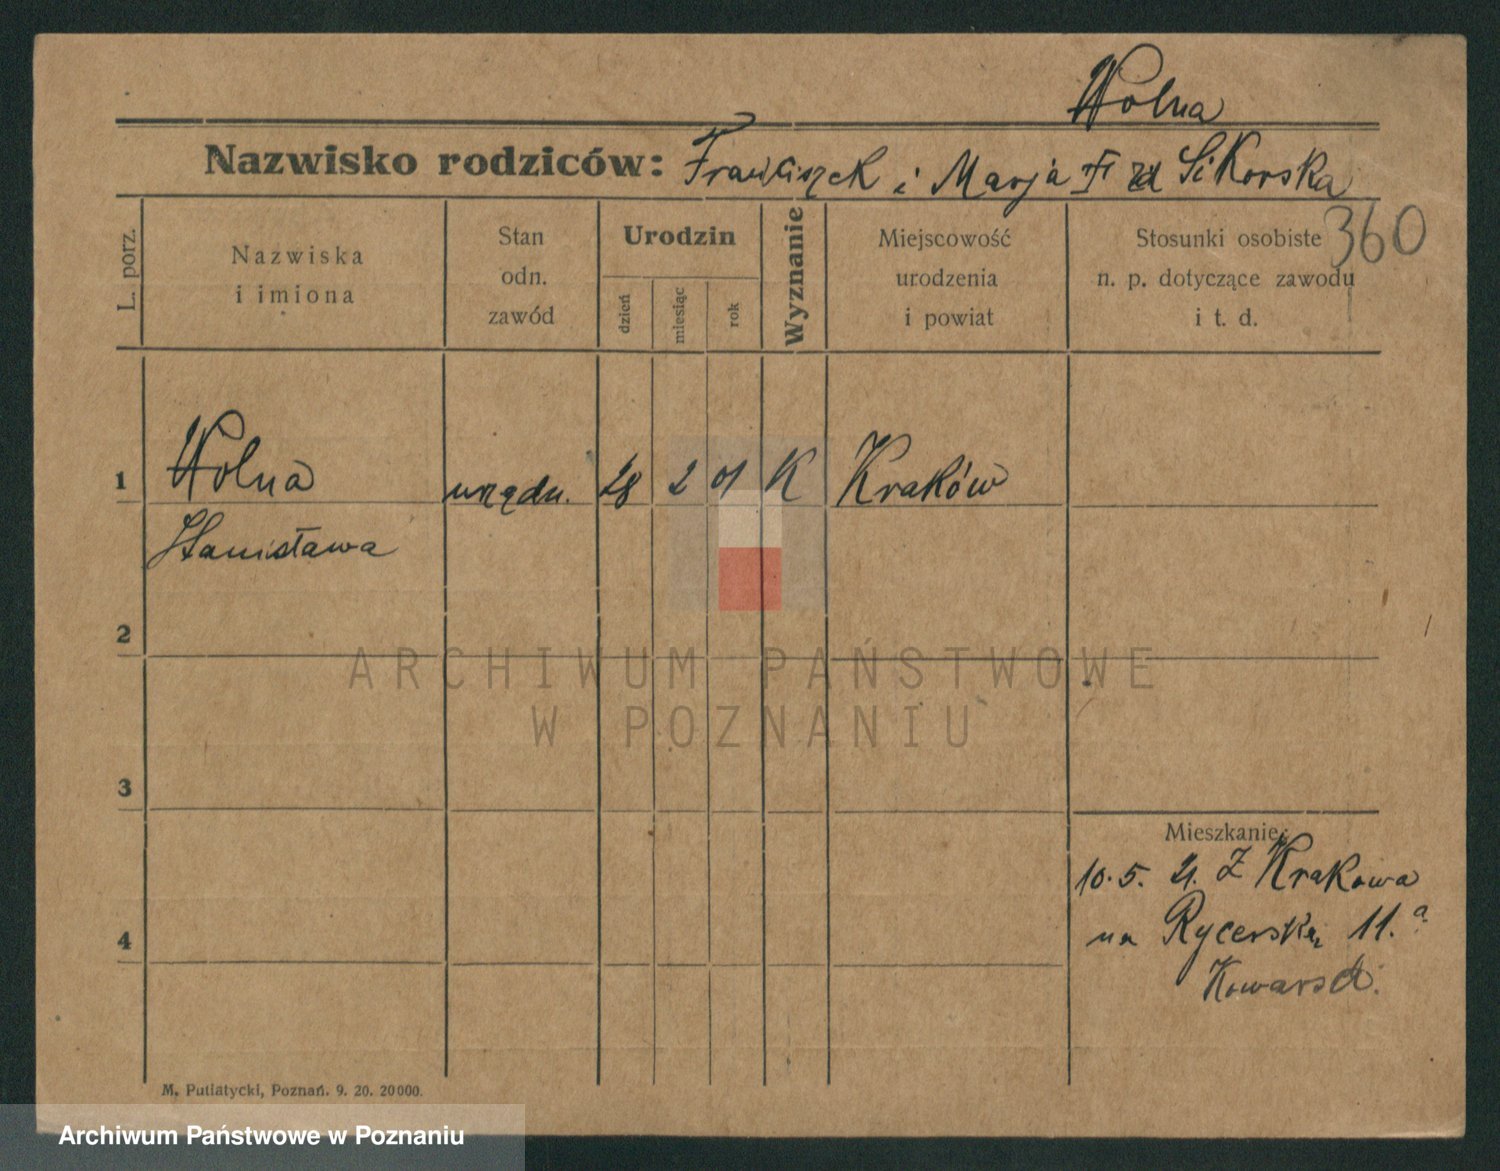 Wolna
Nazwisko rodziców: Franciszek i Marja Sikorska
360
L. porz.
Nazwiska
i imiona
Stan
odn.
zawód
Urodzin
dzień
miesiąc
rok
Wyznanie
Miejscowość
urodzenia
i powiat
Stosunki osobiste
n. p. dotyczące zawodu
i t. d.
1 Wolna urzędn. 28 2 01 K Kraków
Stanisława
2
ARCHIWUM PAŃSTWOWE
W POZNANIU
3
Mieszkanie:
10. 5. 21. Z Krakowa
4
na Rycerską 11.a
M. Putiatycki, Poznań. 9. 20. 20000.
Archiwum Państwowe w Poznaniu